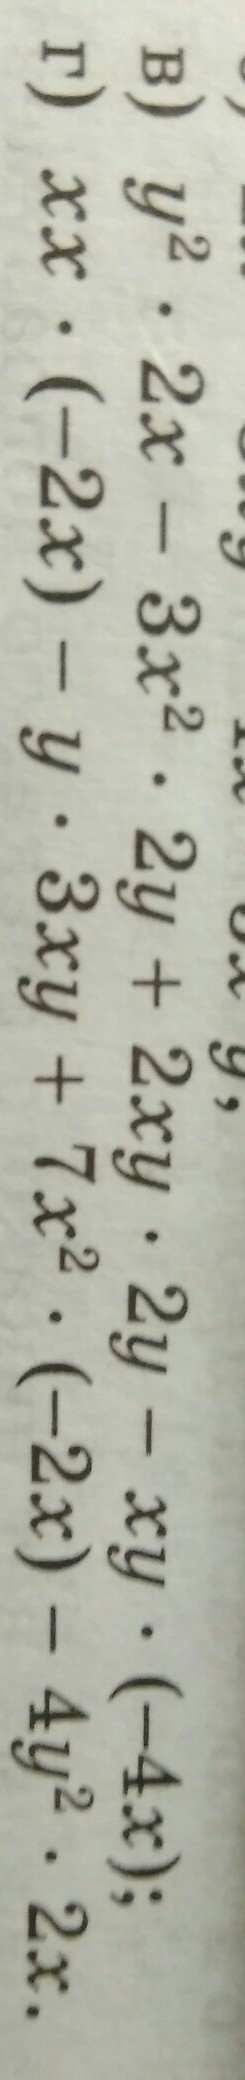 в) y² · 2x − 3x² · 2y + 2xy · 2y − xy · (−4x);
г) xx · (−2x) − y · 3xy + 7x² · (−2x) − 4y² · 2x.